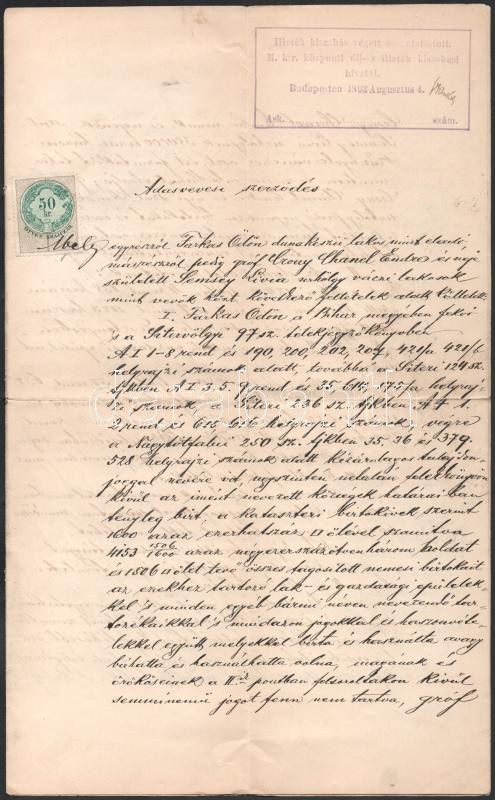 Illeték kiszabás végett bemutattatott.
M. kir. központi díj- és illeték kiszabási
hivatal.
Budapesten 1893 Augusztus 4.
Ask. szám.
Adásvevési szerződés
50
kr.
Mely egyrészről Farkas Ödön dunakeszii lakos mint eladó,
másrészről pedig gróf Crouy Chanel Endre és neje
született Semsey Livia úrhölgy váczi lakosok
mint vevők közt következő feltételek alatt köttetett:
I. Farkas Ödön a Bihar megyében fekvő
és a Sitervölgyi 97 sz. telekjegyzőkönyvben
A I 1-8 rend és 190, 200, 202, 207, 421/a 421/b
helyrajzi számok alatt, továbbá a Siteri 124 sz.
tjkben A I 3. 5. 9 rend és 35, 615, 175/a helyraj-
zi számok, a Siteri 236 sz. tjkben A † 1.
2 rend és 615, 616 helyrajzi számok, végre
a Nagykótfalui 250 sz. tjkben 35, 36 és 379.
528 helyrajzi számok alatt kizárólagos tulajdon-
joggal nevére írt, úgyszintén netalán telekkönyvön
kívül az imént nevezett községek határaiban
tényleg bírt, a kataszteri birtokívek szerint
1600 azaz ezerhatszáz □ ölével számítva
4153 1506/1600 azaz négyezerszázötvenhárom holdat
és 1506 □ ölet tevő összes tagosított nemesi birtokait
az ezekhez tartozó lak- és gazdasági épületek-
kel s minden egyéb bármi néven nevezendő tar-
tozékaikkal s mindazon jogokkal és haszonvéte-
lekkel együtt melyekkel bírta és használta avagy
bírhatta és használhatta volna, magának és
örököseinek a II-ik pontban felsoroltakon kívül
semminemű jogot fenn nem tartva, gróf